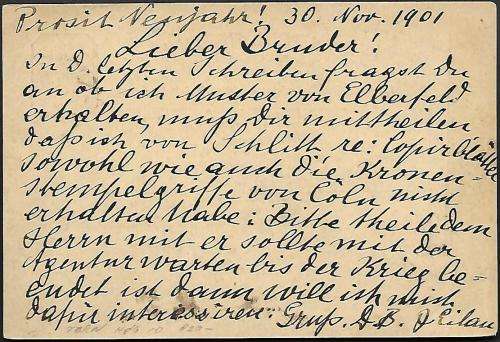 Prosit Neujahr! 30. Nov. 1901
Lieber Bruder!
In d. letzten Schreiben fragst Du
an ob ich Muster von Elberfeld
erhalten, muß Dir mittheilen
daß ich von Schlitt re: Copirblätter
sowohl wie auch die Kronen-
stempelgriffe von Cöln nicht
erhalten habe: Bitte theile dem
Herrn mit er sollte mit der
Agentur warten bis der Krieg be-
endet ist dann will ich mich
dafür interessiren: Gruß. D. B.